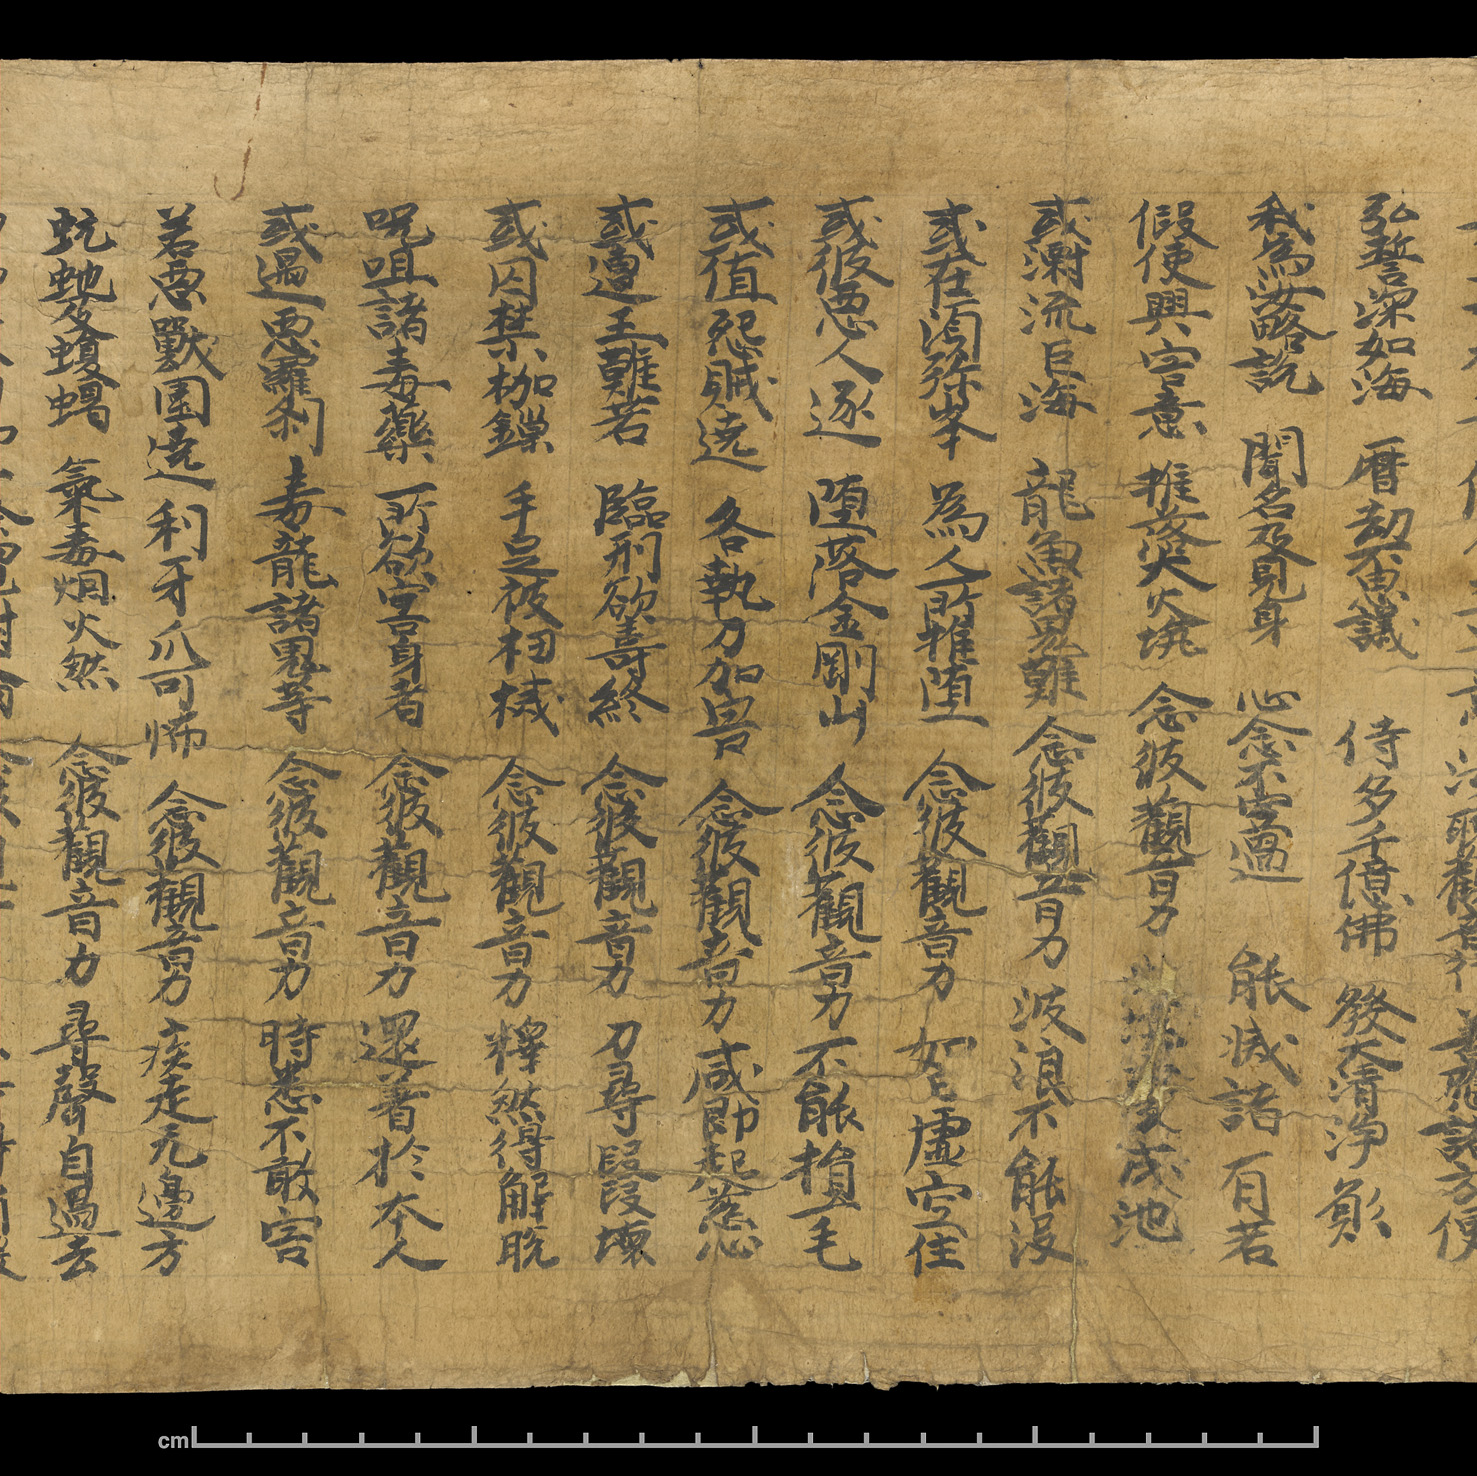 聽觀音行 善應諸方便
弘誓深如海 曆劫不思議 侍多千億佛 發大清淨願
我為汝略説 聞名及見身 心念不空過 能滅諸有苦
假使興害意 推落大火坑 念彼觀音力 成池
或漂流巨海 龍魚諸鬼難 念彼觀音力 波浪不能没
或在須弥峯 為人所推墮 念彼觀音力 如日虚空住
或彼惡人逐 墮落金剛山 念彼觀音力 不能損一毛
或值怨賊遶 各執刀加害 念彼觀音力 咸即起慈心
或遭王難苦 臨刑欲壽終 念彼觀音力 刀尋段段壞
或囚禁枷鏁 手足彼杻械 念彼觀音力 釋然得解脱
呪咀諸毒藥 所欲害身者 念彼觀音力 還着於本人
或遇惡羅刹 毒龍諸鬼等 念彼觀音力 時悉不敢害
若惡獸圍遶 利牙爪可怖 念彼觀音力 疾走无邊方
蚖虵及蝮蝎 氣毒烟火然 念彼觀音力 尋聲自過去
cm